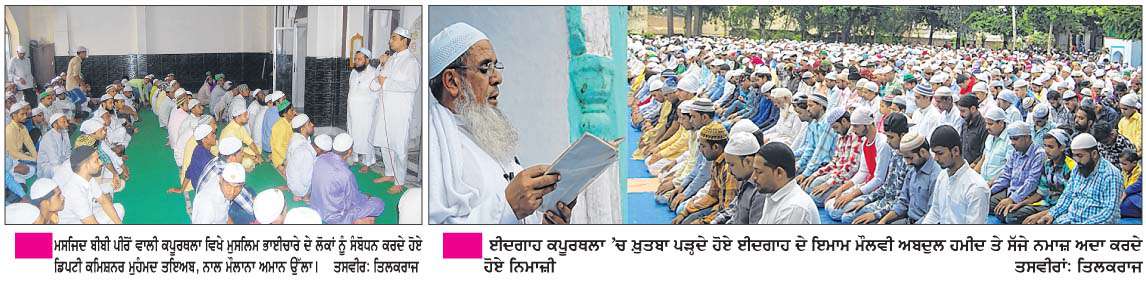 ਮਸਜਿਦ ਬੀਬੀ ਪੀਰੋਂ ਵਾਲੀ ਕਪੂਰਥਲਾ ਵਿਖੇ ਮੁਸਲਿਮ ਭਾਈਚਾਰੇ ਦੇ ਲੋਕਾਂ ਨੂੰ ਸੰਬੋਧਨ ਕਰਦੇ ਹੋਏ
ਡਿਪਟੀ ਕਮਿਸ਼ਨਰ ਮੁਹੰਮਦ ਤਇਅਬ, ਨਾਲ ਮੌਲਾਨਾ ਅਮਾਨ ਉੱਲਾ। ਤਸਵੀਰ: ਤਿਲਕਰਾਜ
ਈਦਗਾਹ ਕਪੂਰਥਲਾ ’ਚ ਖ਼ੁਤਬਾ ਪੜ੍ਹਦੇ ਹੋਏ ਈਦਗਾਹ ਦੇ ਇਮਾਮ ਮੌਲਵੀ ਅਬਦੁਲ ਹਮੀਦ ਤੇ ਸੱਜੇ ਨਮਾਜ਼ ਅਦਾ ਕਰਦੇ
ਹੋਏ ਨਿਮਾਜ਼ੀ ਤਸਵੀਰਾਂ: ਤਿਲਕਰਾਜ